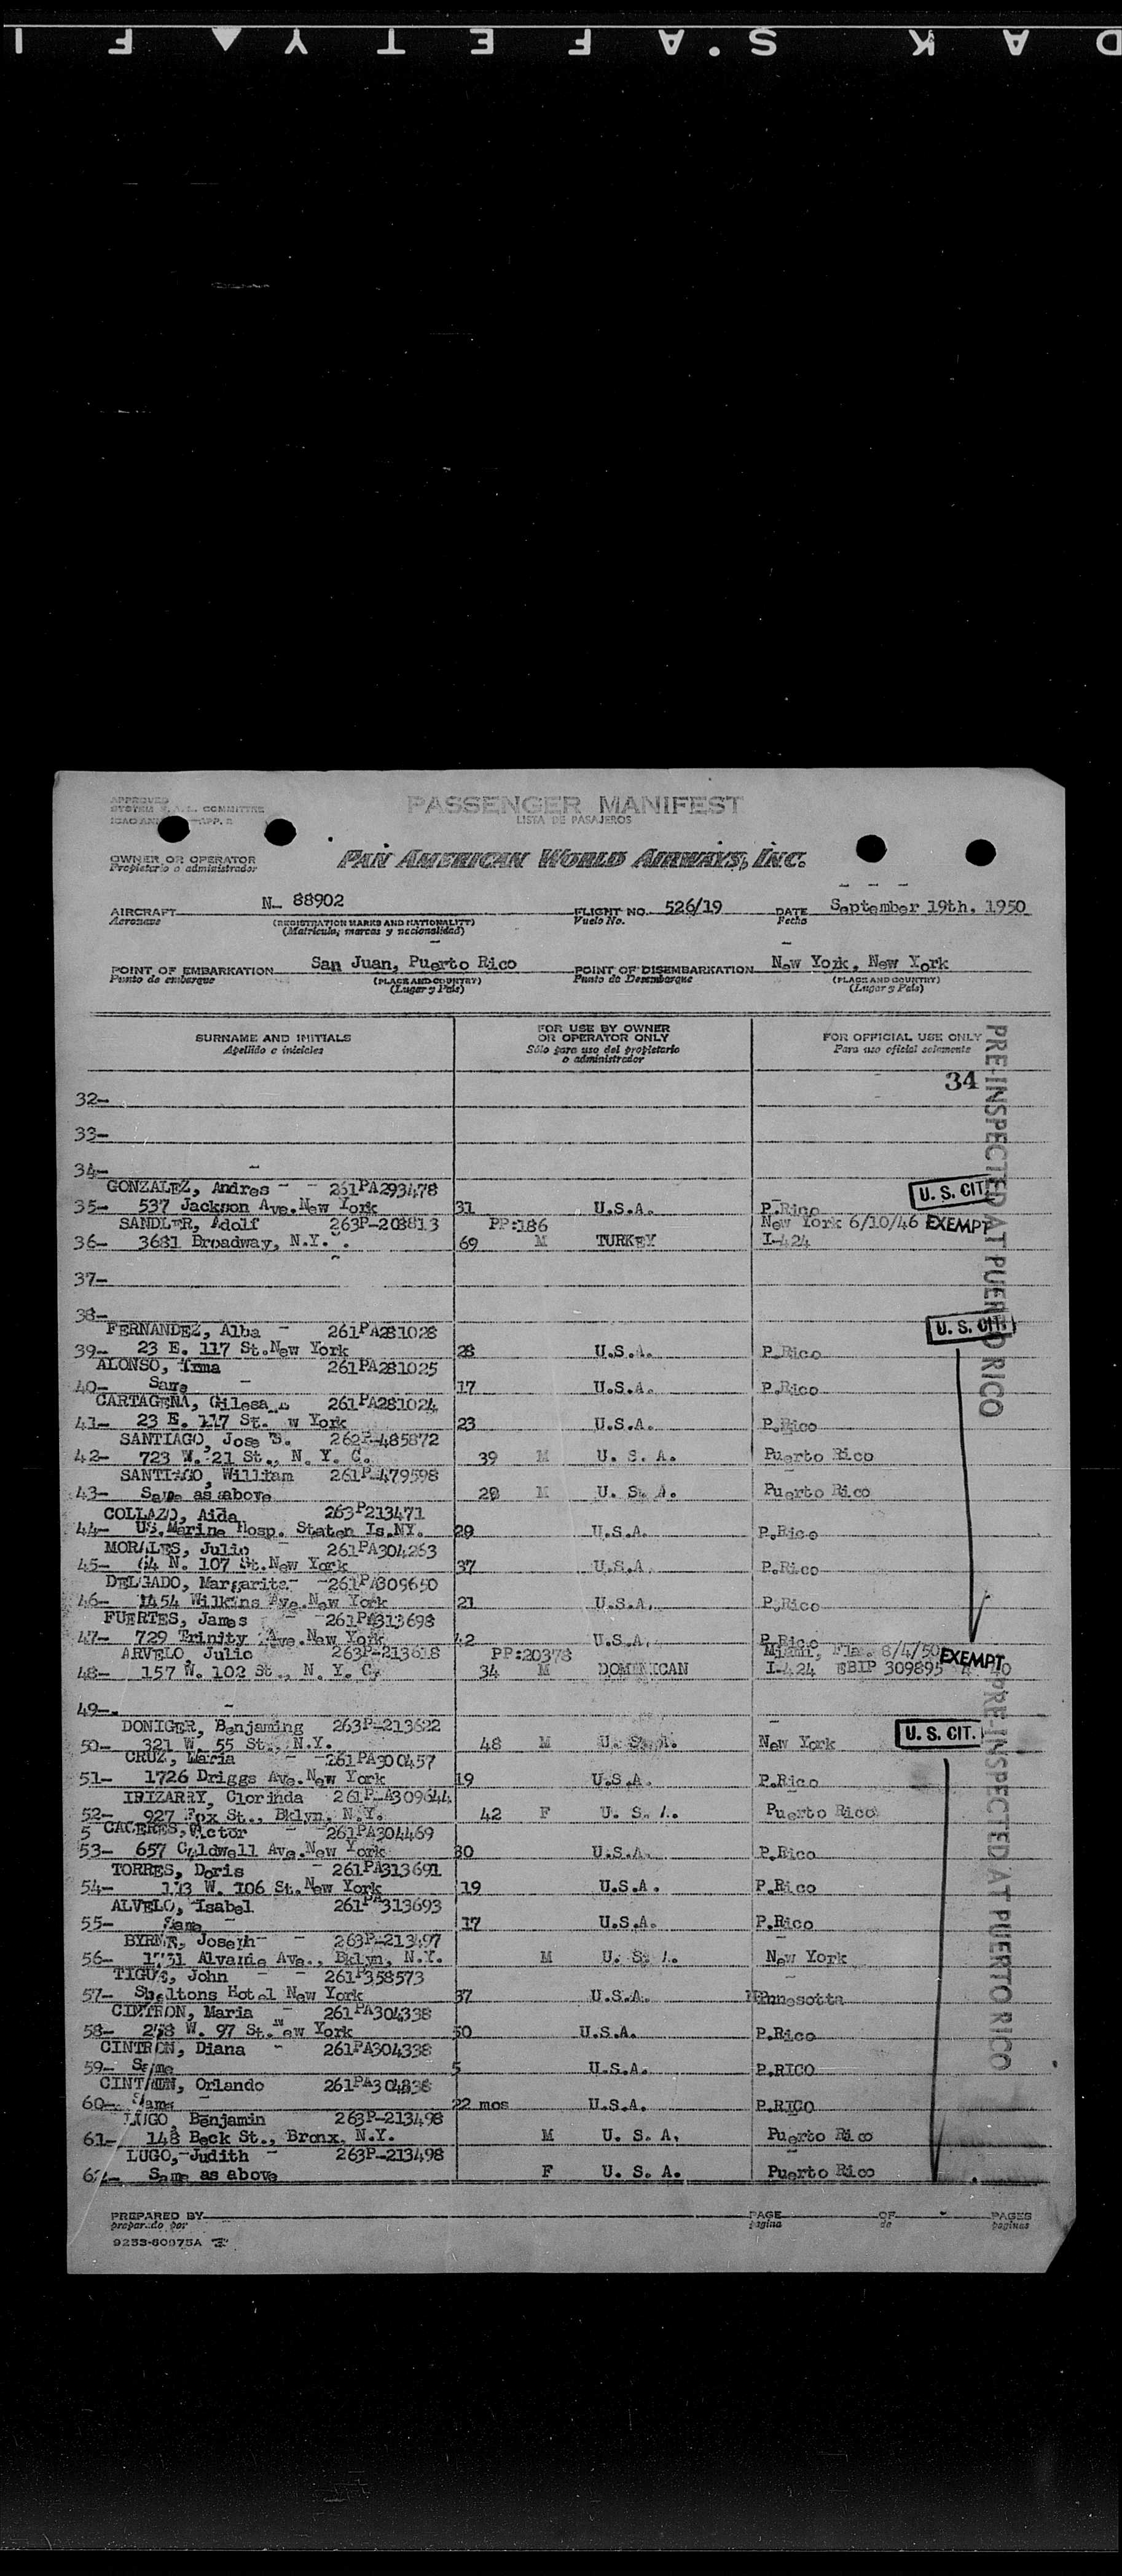 KODAK SAFETY FI
APPROVED
PASSENGER MANIFEST
LISTA DE PASAJEROS
OWNER OR OPERATOR
Propietario o administrador
PAN AMERICAN WORLD AIRWAYS, INC.
AIRCRAFT N- 88902 FLIGHT NO. 526/19 DATE September 19th, 1950
Aeronave (REGISTRATION MARKS AND NATIONALITY) Vuelo No. Fecha
(Matricula, marcas y nacionalidad)
POINT OF EMBARKATION San Juan, Puerto Rico POINT OF DISEMBARKATION New York, New York
Punto de embarque (PLACE AND COUNTRY) Punto de Desembarque (PLACE AND COUNTRY)
(Lugar y Pais) (Lugar y Pais)
SURNAME AND INITIALS FOR USE BY OWNER OR OPERATOR ONLY FOR OFFICIAL USE ONLY
Apellido e iniciales Sólo para uso del propietario o administrador Para uso oficial solamente
34
PRE-INSPECTED AT PUERTO RICO
32-
33-
34-
GONZALEZ, Andres - - 261PA293478 U. S. CIT.
35- 537 Jackson Ave. New York 31 U.S.A. P.Rico
SANDLER, Adolf 263P-208813 PP:186 New York 6/10/46 EXEMPT
36- 3681 Broadway, N.Y. 69 M TURKEY I-424
37-
38-
FERNANDEZ, Alba - 261PA281028 U. S. CIT.
39- 23 E. 117 St. New York 28 U.S.A. P.Rico
ALONSO, Irma 261PA281025
40- Same - 17 U.S.A. P.Rico
CARTAGENA, 261PA281024
41- 23 E. 117 St. w York 23 U.S.A. P.Rico
SANTIAGO, Jose 262P-485872
42- 723 W. 21 St., N. Y. C. 39 M U. S. A. Puerto Rico
SANTIAGO, William 261P-479598
43- Same as above M U. S. A. Puerto Rico
COLLAZO, Aida 263P213471
44- US.Marine Hosp. Staten Is.NY. 29 U.S.A. P.Rico
MORALES, Julio - 261PA304263
45- 64 N. 107 St.New York 37 U.S.A. P.Rico
DELGADO, Margarita- -261PA309650
46- 1454 Wilkins Ave.New York 21 U.S.A. P.Rico
FUERTES, James - 261PA313698
47- 729 Trinity Ave.New York 42 U.S.A. P.Rico
ARVELO, Julio 263P-213618 PP:20378 Miami, Fla. 8/4/50 EXEMPT
48- 157 W. 102 St., N. Y. C. 34 M DOMINICAN I-424 EBIP 309895
PRE-INSPECTED AT PUERTO RICO
49-
DONIGER, Benjaming 263P-213622 U. S. CIT.
50- 321 W. 55 St., N.Y. 48 M U. S. A. New York
CRUZ, Maria -261PA300457
51- 1726 Driggs Ave.New York 19 U.S.A. P.Rico
IRIZARRY, Clorinda 261P-A309644
52- 927 Fox St., Bklyn, N.Y. 42 F U. S. A. Puerto Rico
5 CACERES, Victor - -261PA304469
53- 657 Caldwell Ave.New York 30 U.S.A. P.Rico
TORRES, Doris - 261PA313691
54- 113 W. 106 St.New York 19 U.S.A. P.Rico
ALVELO, Isabel 261PA313693
55- Same - 17 U.S.A. P.Rico
BYRNE, Joseph- - 263P-213497
56- Ave., Bklyn, N.Y. M U. S. A. New York
John - - 261P358573
57- Sheltons Hotel New York 37 U.S.A.
CINTRON, Maria - 261PA304338
58- W. 97 St. New York 50 U.S.A. P.Rico
CINTRON, Diana - 261PA304338
59- Same 5 U.S.A. P.RICO
CINTRON, Orlando 261PA304338
60- Same 22 mos U.S.A. P.RICO
LUGO, Benjamin 263P-213498
61- 148 Beck St., Bronx, N.Y. M U. S. A. Puerto Rico
LUGO, Judith - 263P-213498
62- Same as above F U. S. A. Puerto Rico
PREPARED BY PAGE OF PAGES
preparado por pagina de paginas
9253-60975A